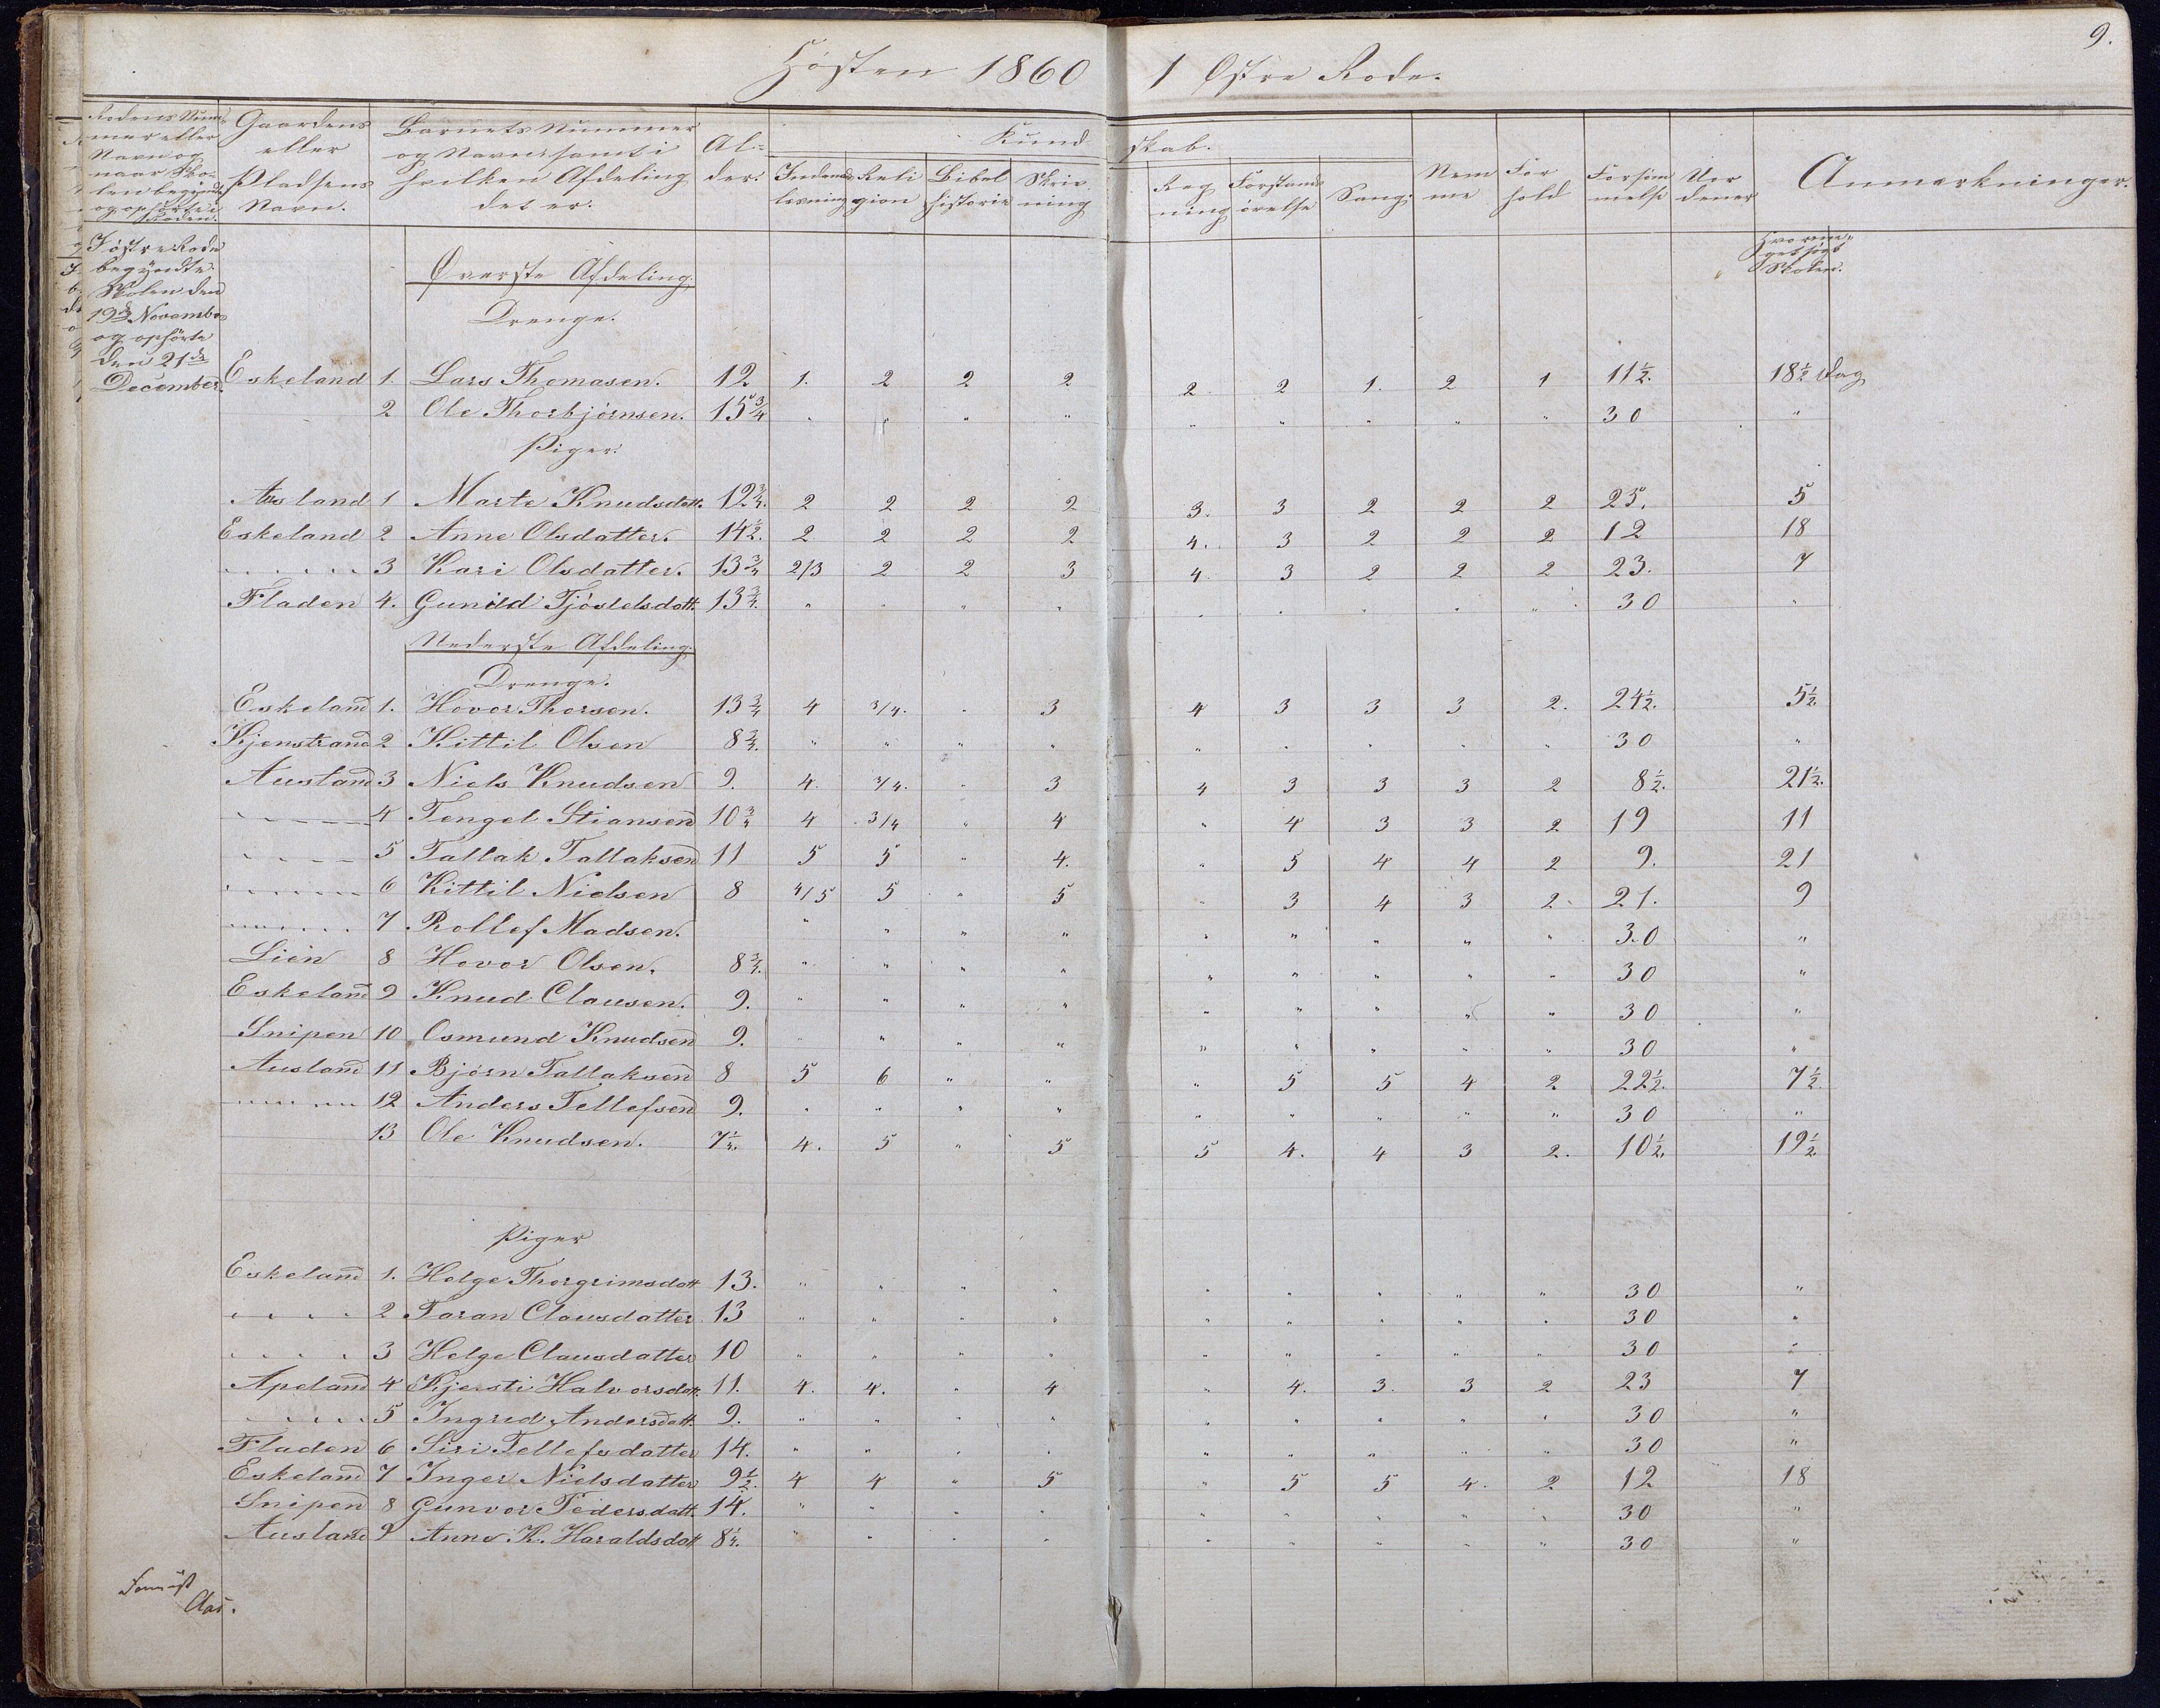 Høsten 1860 1 Østre Rode.
9.
Rodens Num-
mer eller
Navn og
naar Sko-
len begyndte
og opførte i
Roden.
Gaardens
eller
Pladsens
Navn.
Barnets Nummer
og Navn samt i
hvilken Afdeling
det er.
Al-
der.
Kund skab.
Indenads
læsning
Reli
gion
Bibel
historie
Skriv
ning
Reg
ning
Forstands
øvelse
Sang.
Nem
me
For
hold
Forsøm
melse
Uor
dener
Anmærkninger.
Hvor me-
get søgt
Skolen.
I østre Rode
begyndte
Skolen den
19de Novembr
og opførte
den 21de
December.
Øverste Afdeling.
Drenge.
Eskeland 1. Lars Thomasen. 12 1. 2 2 2 2. 2 1. 2 1 11½. 18½ Dag
2 Ole Thorbjørnsen. 15¾ " " " " " " " " " 30 "
Piger.
Ausland 1 Marte Knudsdatt. 12¾. 2 2 2 2 3. 3 2 2 2 25. 5
Eskeland 2 Anne Olsdatter. 14½. 2 2 2 2 4. 3 2 2 2 12 18
" " " " " 3 Kari Olsdatter. 13¾ 2/3 2 2 3 4 3 2 2 2 23. 7
Fladen 4. Gunild Tjøstelsdatt. 13¾. " " " " " " " " " 30 "
Nederste Afdeling.
Drenge.
Eskeland 1. Hovor Thorsen. 13¾ 4 3/4. " 3 4 3 3 3 2. 24½. 5½.
Kjenstrand 2 Kittil Olsen 8¾. " " " " " " " " " 30 "
Ausland 3 Niels Knudsen 9. 4. 3/4. " 3 4 3 3 3 2 8½. 21½.
" " " " 4 Tengel Stiansen 10¾ 4 3/4 " 4 " 4 3 3 2 19 11
" " " " 5 Tallak Tallaksen 11 5 5 " 4. " 5 4 4 2 9. 21
" " " " 6 Kittil Nielsen 8 4/5 5 " 5 " 3 4 3 2 21. 9
" " " " 7 Rollef Madsen. " " " " " " " " " 30 "
Lien 8 Hovor Olsen. 8¾. " " " " " " " " " 30 "
Eskeland 9 Knud Clausen. 9. " " " " " " " " " 30 "
Snipen 10 Osmund Knudsen 9. " " " " " " " " " 30 "
Ausland 11 Bjørn Tallaksen 8 5 6 " " " 5 5 4 2 22½. 7½.
" " " " 12 Anders Tellefsen 9. " " " " " " " " " 30 "
13 Ole Knudsen. 4. 5 " 5 5 4. 4 3 2. 10½. 19½.
Piger
Eskeland 1. Helge Thorgrimsdatt 13. " " " " " " " " " 30 "
" " " " 2 Taran Clausdatter 13 " " " " " " " " " 30 "
" " " " 3 Helge Clausdatter 10 " " " " " " " " " 30 "
Apeland 4 Kjersti Halvorsdatt. 11. 4. 4. " 4 " 4. 3. 3 2 23 7
" " " " 5 Ingrid Andersdatt. 9. " " " " " " " " " 30 "
Fladen 6 Siri Tellefsdatter 14. " " " " " " " " " 30 "
Eskeland 7 Inger Nielsdatter 9½. 4 4 " 5 " 5 5 4. 2 12 18
Snipen 8 Gunvor Pedersdatt. 14. " " " " " " " " " 30 "
Ausland 9 Anne K. Haraldsdatt " " " " " " " " " 30 "